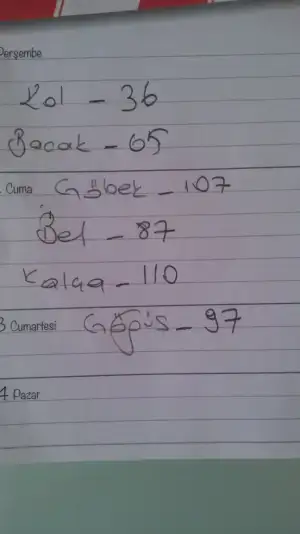 Perşembe
Kol - 36
Bacak - 65
Cuma Göbek - 107
Bel - 87
Kalça - 110
3 Cumartesi Göğüs - 97
4 Pazar